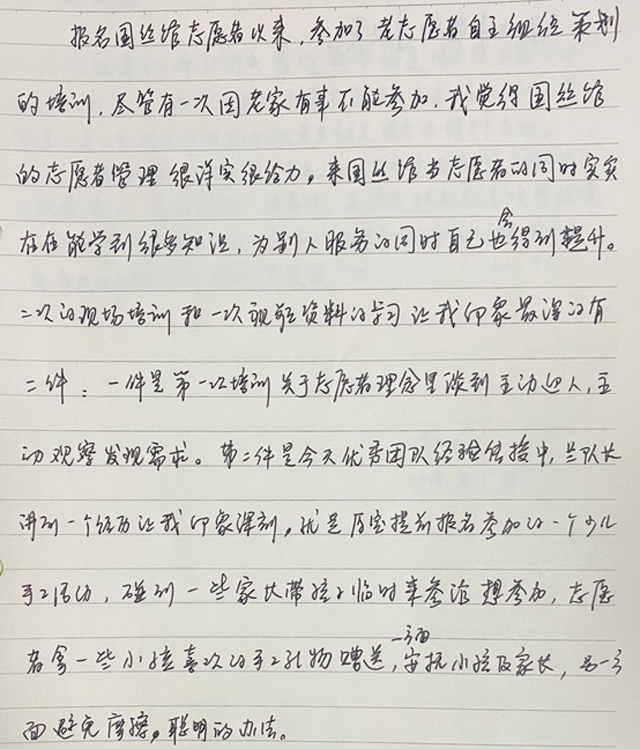 报名国丝馆志愿者以来，参加了老志愿者自主组织策划
的培训，尽管有一次因老家有事不能参加，我觉得国丝馆
的志愿者管理很详实很给力，来国丝馆当志愿者的同时实实
在在能学到很多知识，为别人服务的同时自己也会得到提升。
二次的现场培训和一次视频资料的学习让我印象最深的有
二件：一件是第一次培训关于志愿者理念里谈到主动迎人，主
动观察发现需求。第二件是今天优秀团队经验传授中，兰队长
讲到一个经历让我印象深刻，就是原定提前报名参加的一个少儿
手工活动，碰到一些家长带孩子临时来参访想参加，志愿
者拿一些小孩喜欢的手工礼物赠送，一方面安抚小孩及家长，另一方
面避免摩擦，聪明的办法。